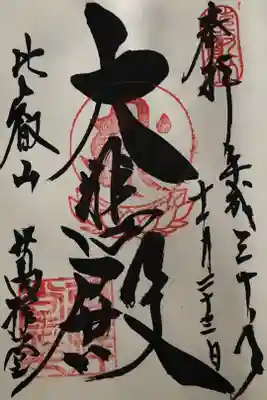 奉拝 平成三十年
十一月二十三日
大悲殿
比叡山
萬拝堂